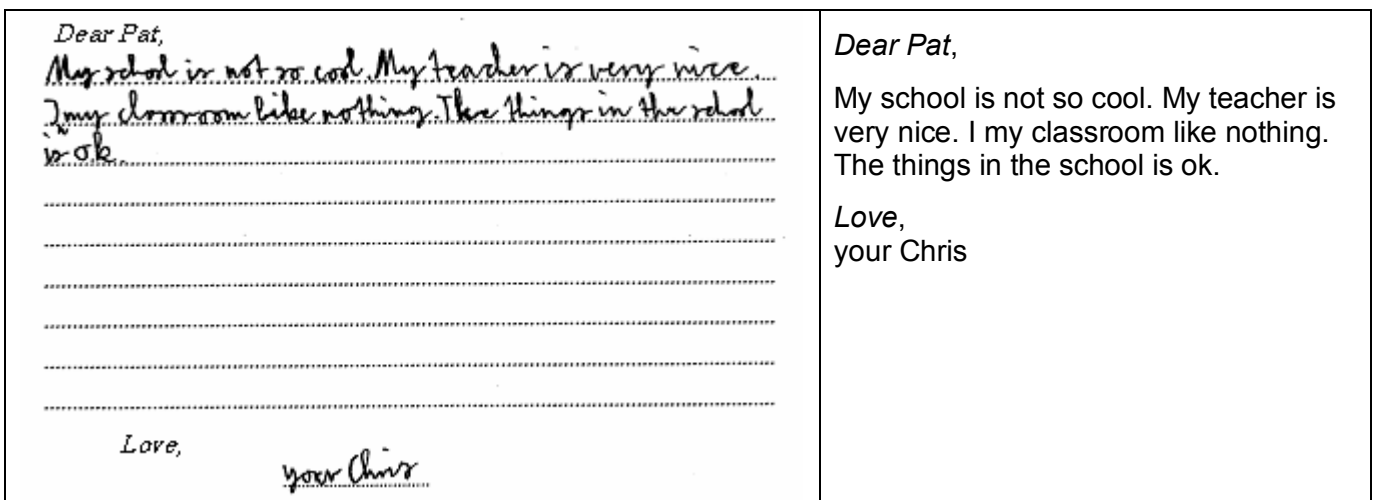 Dear Pat,
My school is not so cool. My teacher is very nice.
I my classroom like nothing. The things in the school
is ok.
Love,
your Chris
Dear Pat,
My school is not so cool. My teacher is
very nice. I my classroom like nothing.
The things in the school is ok.
Love,
your Chris